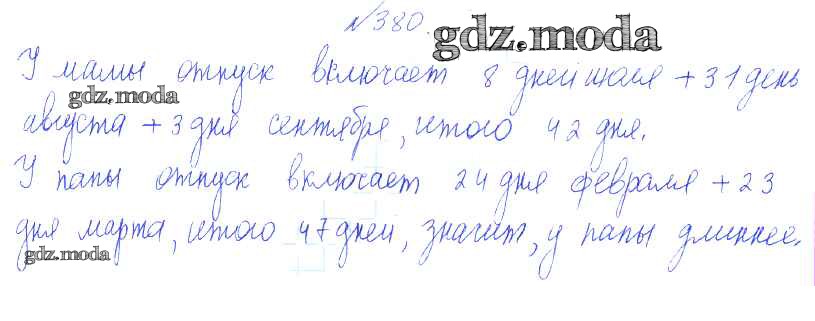 №380.
gdz.moda
У мамы отпуск включает 8 дней июля + 31 день
gdz.moda
августа + 3 дня сентября, итого 42 дня.
У папы отпуск включает 24 дня февраля + 23
дня марта, итого 47 дней, значит, у папы длиннее.
gdz.moda